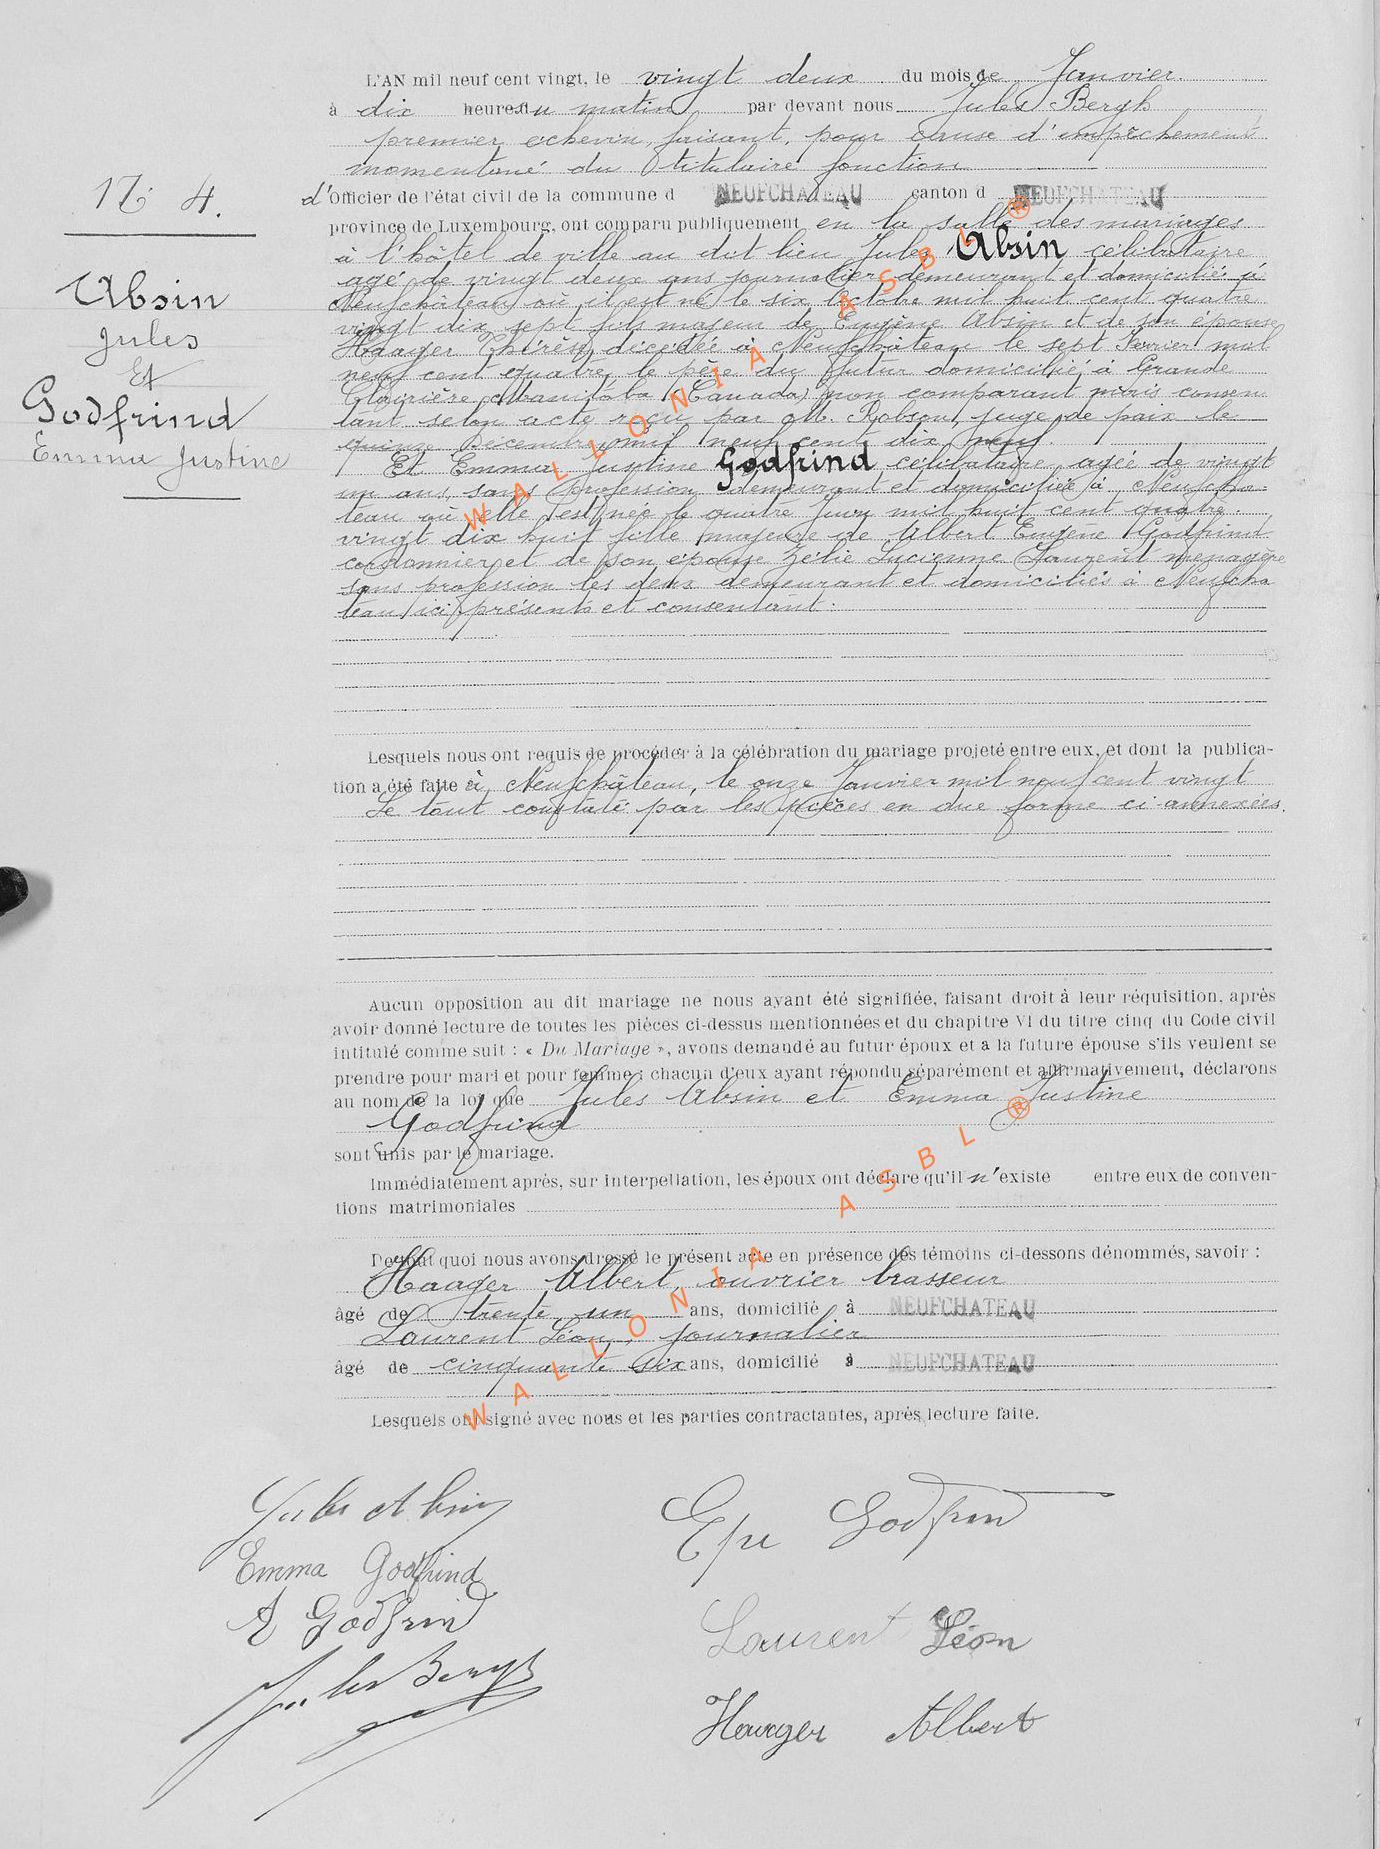 L'AN mil neuf cent vingt, le vingt deux du mois de Janvier
à dix heures du matin par devant nous Jules Bergh
premier echevin, faisant, pour cause d'empêchement
momentané du titulaire fonction
d'Officier de l'état civil de la commune d NEUFCHATEAU canton d NEUFCHATEAU
province de Luxembourg, ont comparu publiquement en la salle des mariages
à l'hôtel de ville au dit lieu Jules Absin célibataire
agé de vingt deux ans journalier demeurant et domicilié à
Neufchâteau où il est né le six Octobre mil huit cent quatre
vingt dix sept fils majeur de Eugène Absin et de son épouse
Haager Thérèse décédée à Neufchâteau le sept Février mil
neuf cent quatre, le père du futur domicilié à Grande
Clairière Manitoba (Canada) non comparant mais consen
tant selon acte reçu par M. Robson, juge de paix le
quinze Décembre mil neuf cent dix neuf.
Et Emma Justine Godfrind célibataire agée de vingt
un ans, sans profession demeurant et domiciliée à Neufchâ-
teau où elle est née le quatre Juin mil huit cent quatre
vingt dix huit fille majeure de Albert Eugène Godfrind
cordonnier et de son épouse Zélie Lucienne Laurent menagère
sans profession les deux demeurant et domiciliés à Neufchâ
teau ici présents et consentant:
N° 4.
Absin
Jules
Et
Godfrind
Emma Justine
Lesquels nous ont requis de procéder à la célébration du mariage projeté entre eux, et dont la publica-
tion a été faite à Neufchâteau, le onze Janvier mil neuf cent vingt
Le tout constaté par les pièces en due forme ci-annexées.
Aucun opposition au dit mariage ne nous ayant été signifiée, faisant droit à leur réquisition, après
avoir donné lecture de toutes les pièces ci-dessus mentionnées et du chapitre VI du titre cinq du Code civil
intitulé comme suit : « Du Mariage », avons demandé au futur époux et a la future épouse s'ils veulent se
prendre pour mari et pour femme ; chacun d'eux ayant répondu séparément et affirmativement, déclarons
au nom de la loi que Jules Absin et Emma Justine
Godfrind
sont unis par le mariage.
Immédiatement après, sur interpellation, les époux ont déclare qu'il n'existe entre eux de conven-
tions matrimoniales
De tout quoi nous avons dressé le présent acte en présence des témoins ci-dessons dénommés, savoir :
Haager Albert, ouvrier brasseur
âgé de trente un ans, domicilié à NEUFCHATEAU
Laurent Léon, journalier
âgé de cinquante six ans, domicilié à NEUFCHATEAU
Lesquels ont signé avec nous et les parties contractantes, après lecture faite.
Jules Absin
Emma Godfrind
A Godfrind
Jules Bergh
Godfrind
Laurent Léon
Haager Albert
WALLONIA ASBL ®
WALLONIA ASBL ®